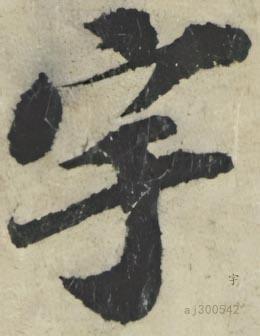 宇
宇
aj300542